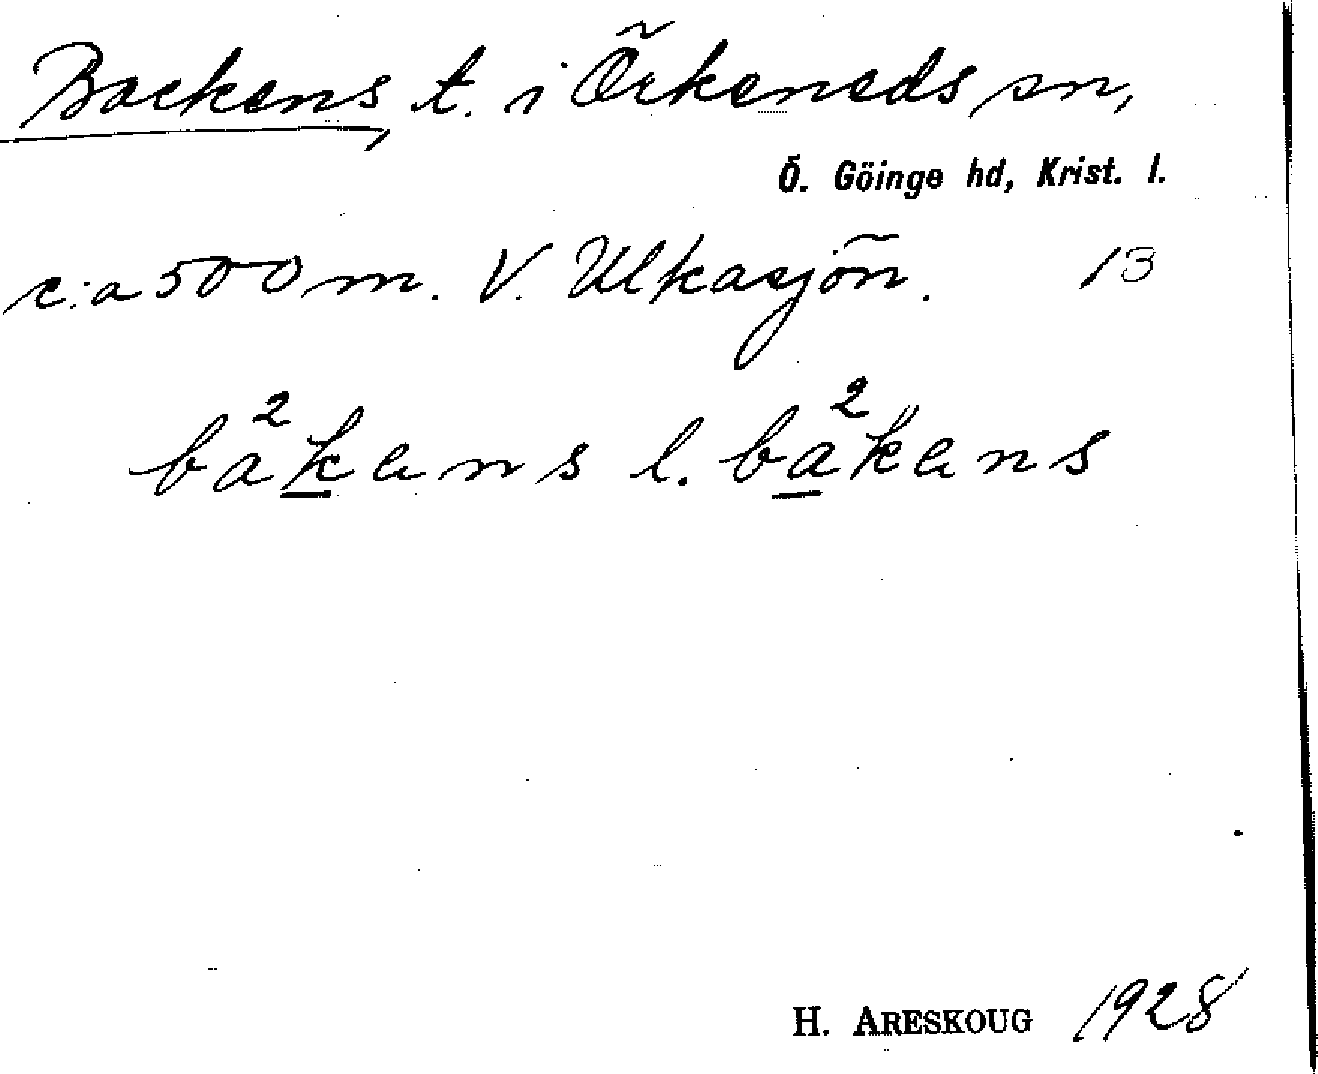 Backens, t. i Örkeneds sn,
Ö. Göinge hd, Krist. l.
c:a 500 m. V. Ulkasjön. 13
ba²kans l. ba²kans
H. ARESKOUG 1928